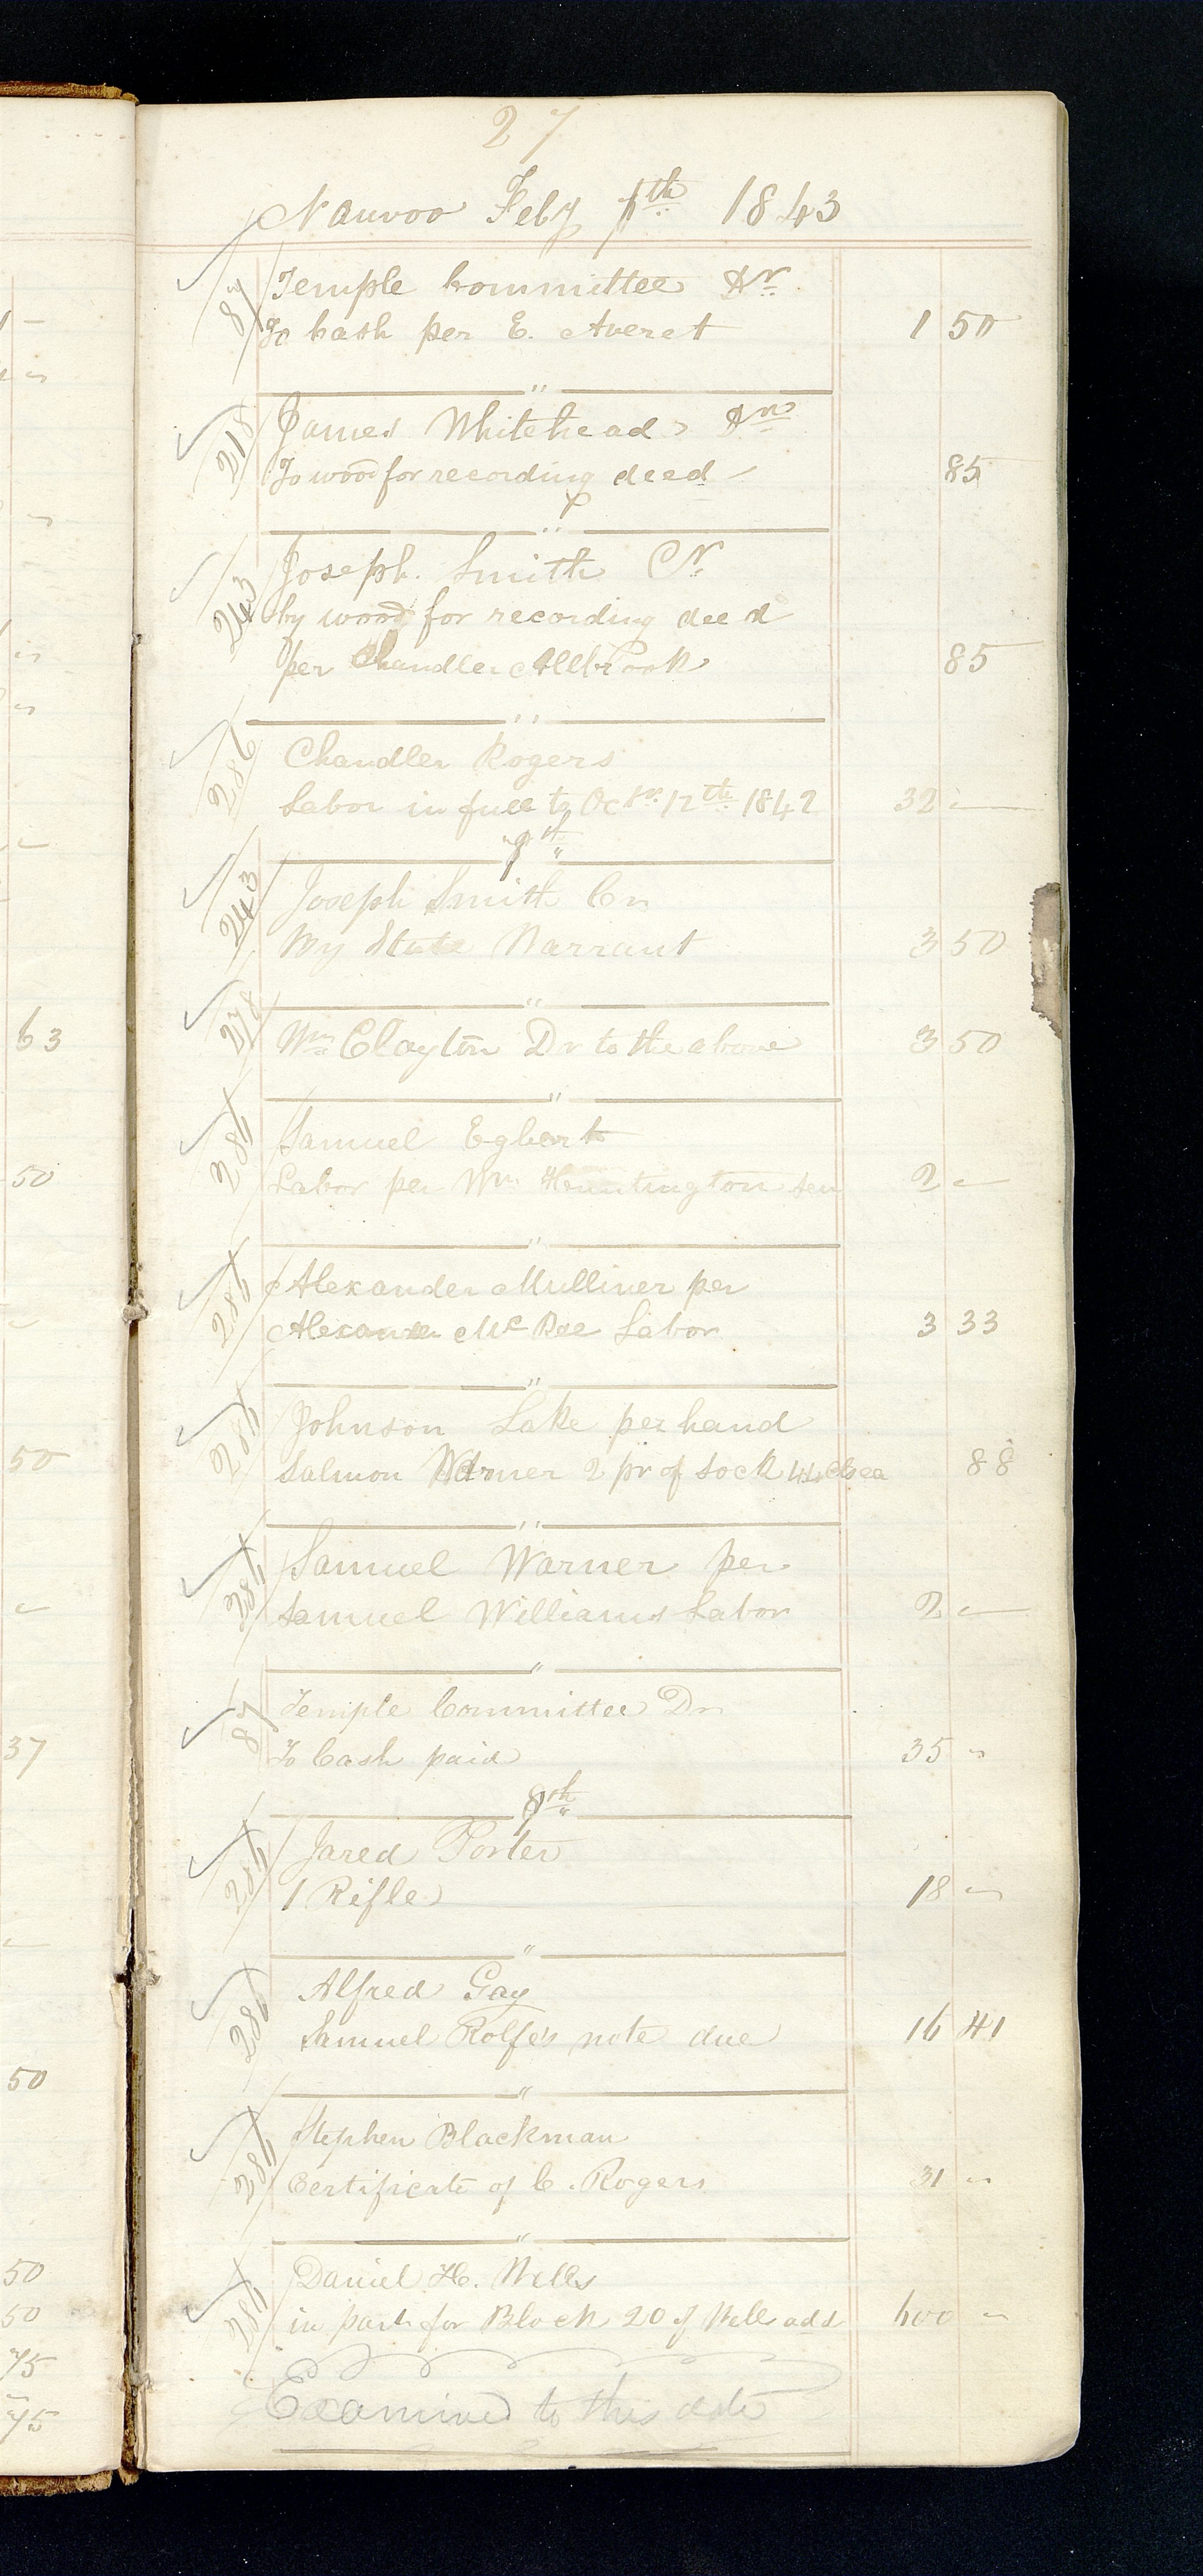 27
Nauvoo Feby 7th 1843
87 Temple Committee Dr
To Cash per E. Averet 1 50
"
218 James Whitehead Dr
To wood for recording deed 85
"
243 Joseph Smith Cr
by wood for recording deed
per Chandler Allbrook 85
"
286 Chandler Rogers
Labor in full to Octr. 12th 1842 32 -
"
243 Joseph Smith Cr
By State Warrant 3 50
"
278 Wm Clayton Dr to the above 3 50
"
286 Samuel Egbert
Labor per Wm Huntington sen 2 -
"
286 Alexander Mulliner per
Alexander McRae Labor 3 33
"
286 Johnson Lake per hand
Salmon Warner 2 pr of sock 44 cts ea 88
"
286 Samuel Warner per
Samuel Williams Labor 2 -
"
87 Temple Committee Dr
To Cash paid 35 "
8th
286 Jared Porter
1 Rifle 18 "
"
286 Alfred Gay
Samuel Rolfe's note due 16 41
"
286 Stephen Blackman
Certificate of C. Rogers 31 "
"
286 Daniel H. Wells
in part for Block 20 of Wells add 600 "
Examined to this date
63
50
50
37
50
50
50
75
75